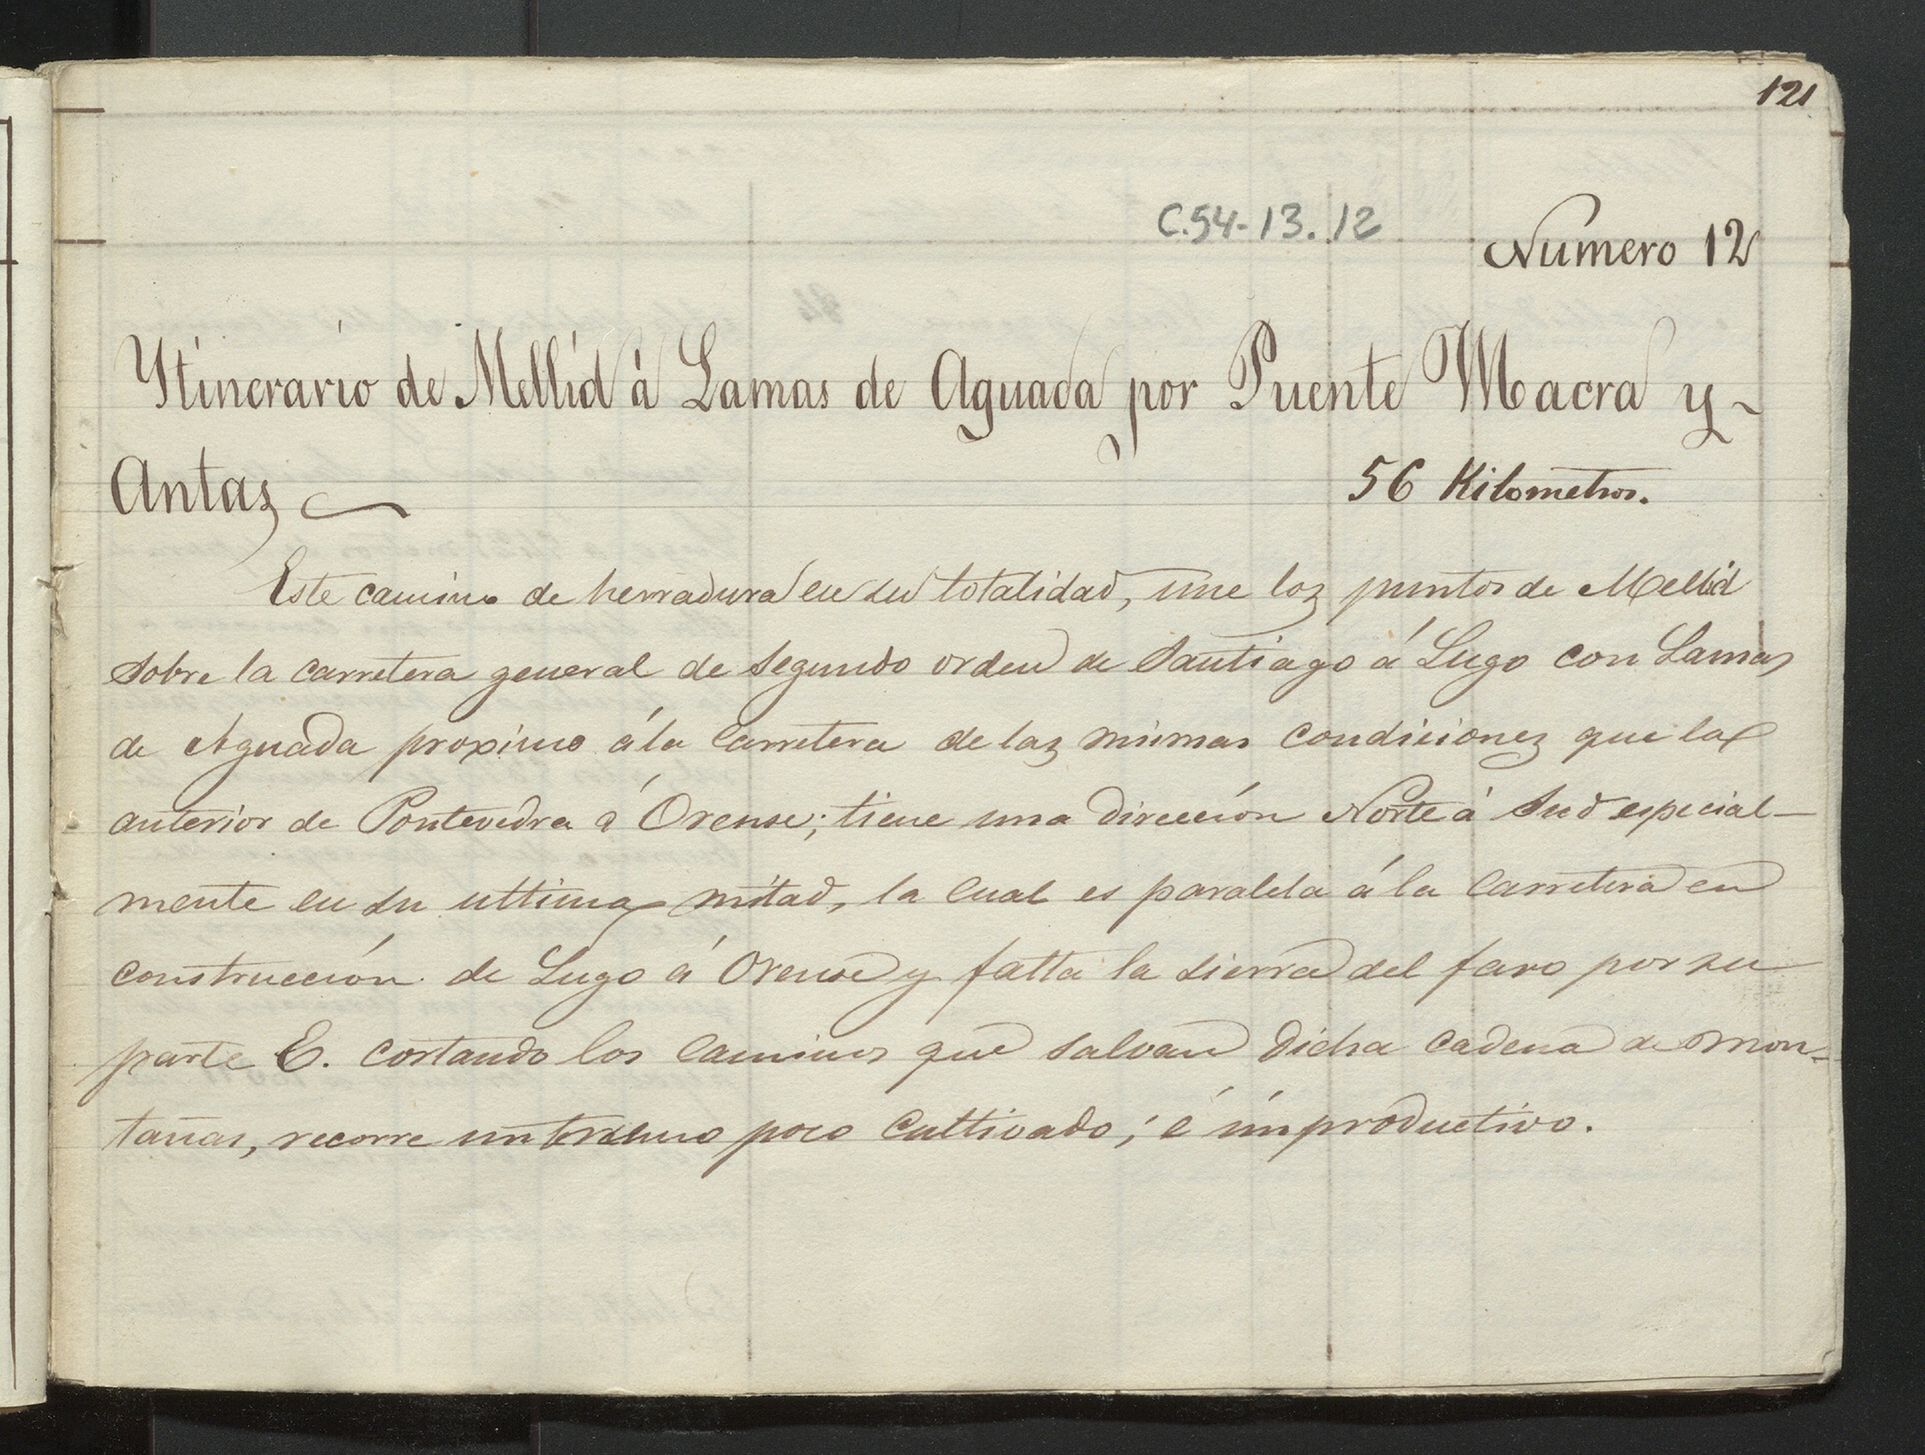 121
C.54-13.12
Numero 12
Ytinerario de Mellid á Lamas de Aguada por Puente Macra y
Antaz
56 Kilometros.
Este camino de herradura en su totalidad, une loz puntos de Mellid
sobre la carretera general de segundo orden de Santiago á Lugo con Lamas
de Aguada proximo á la carretera de laz mismas condicionez que la
anterior de Pontevedra á Orense; tiene una dirección Norte á Sud especial-
mente en su ultima mitad, la cual es paralela á la carretera en
construcción de Lugo á Orense y falta la sierra del faro por su
parte E. cortando los caminos que salvan dicha cadena de mon-
tañas, recorre un terreno poco cultivado, é improductivo.